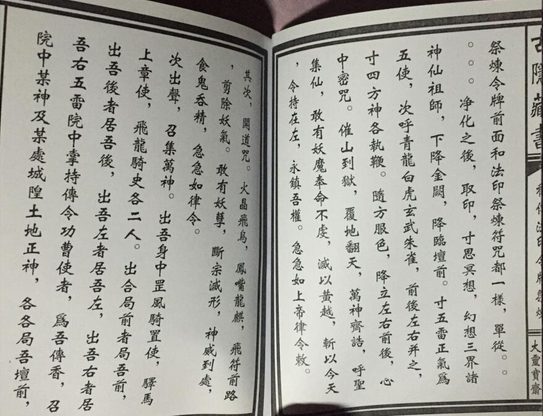 古隱藏書
大靈寶齋
祭煉令牌前面和法印祭煉符咒都一樣，單從。。
。。。淨化之後，取印，寸思冥想，幻想三界諸
神仙祖師，下降金闕，降臨壇前。寸五雷正氣爲
五使，次呼青龍白虎玄武朱雀，前後左右并之，
寸四方神各執鞭。隨方服色，降立左右前後，心
中密咒。催山到獄，覆地翻天，萬神齊詣，呼聖
集仙，敢有妖魔奉命不虔，滅以黃越，斬以今天
，令持在左，永鎮吾權。急急如上帝律令敕。
其次，開道咒。火晶飛烏，鳳嘴龍麒，飛符前路
，剪除妖氣。敢有妖孽，斷宗滅形，神威到處，
食鬼吞精，急急如律令。
次出聲，召集萬神。出吾身中罡風騎置使，驛馬
上章使，飛龍騎史各二人。出合局前者局吾前，
出吾後者居吾後，出吾左者居吾左，出吾右者居
吾右五雷院中掌持傳令功曹使者，爲吾傳香，召
院中某神及某處城隍土地正神，各各局吾壇前，